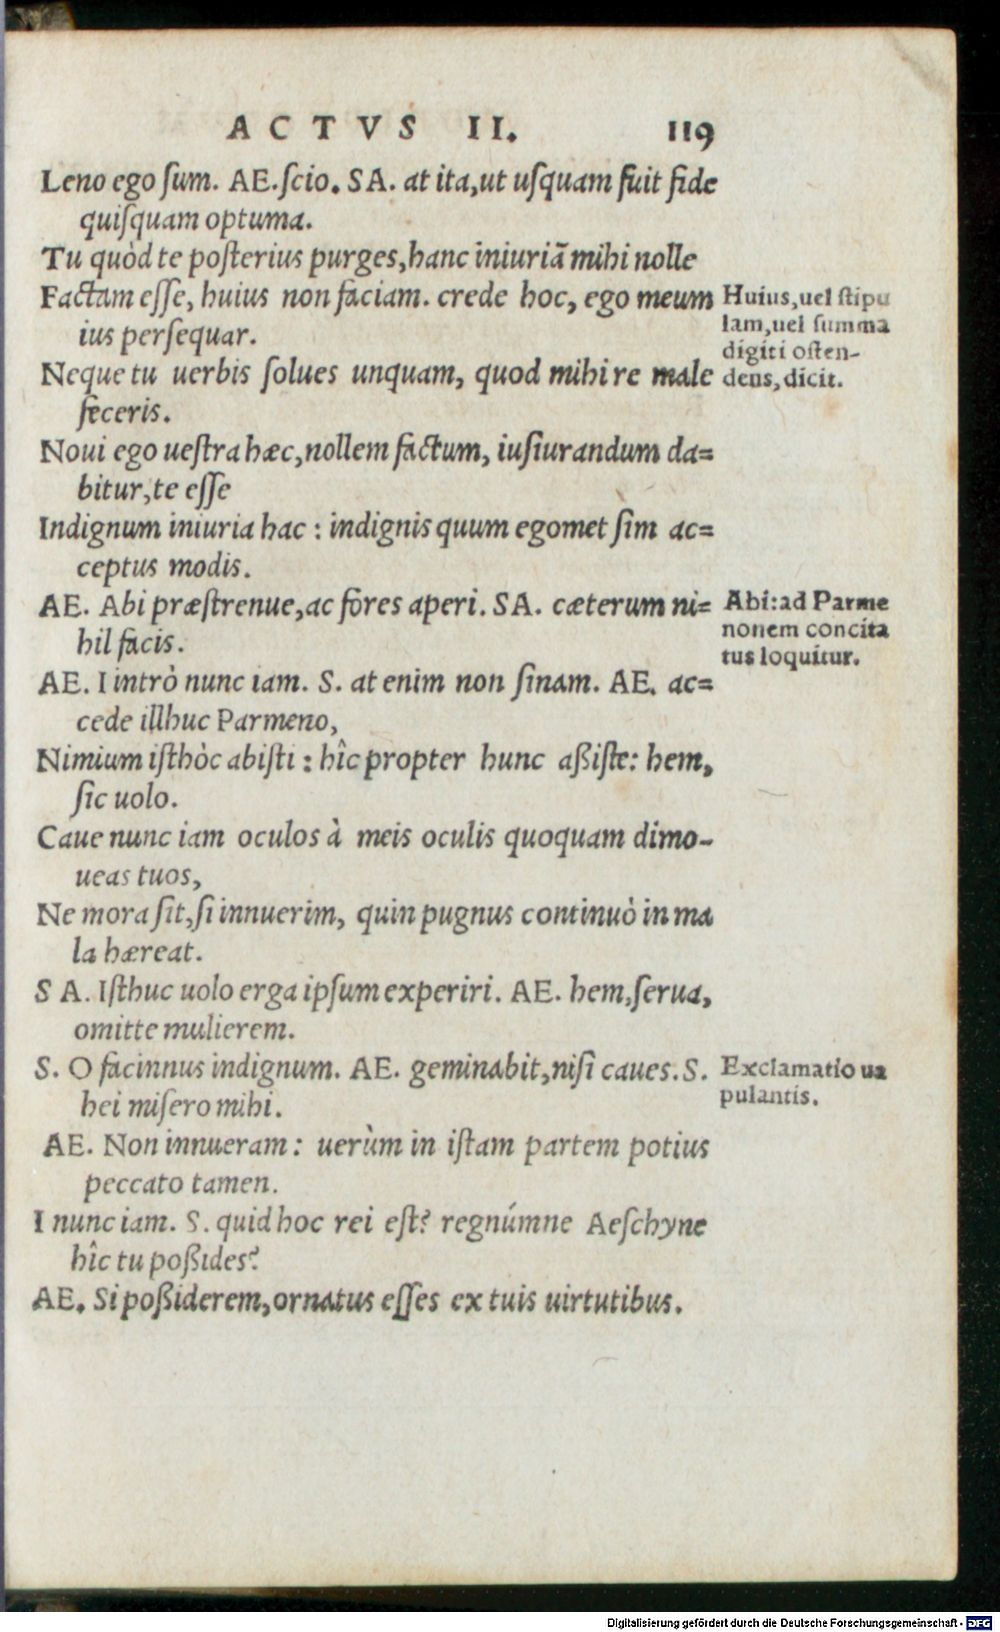 ACTVS II. 119
Leno ego ſum. AE. ſcio. SA. at ita, ut uſquam fuit fide
quiſquam optuma.
Tu quòd te poſterius purges, hanc iniuriā mihi nolle
Factam eſſe, huius non faciam. crede hoc, ego meum
ius perſequar.
Huius, uel ſtipu
lam, uel ſumma
digiti oſten-
dens, dicit.
Neque tu uerbis ſolues unquam, quod mihi re male
feceris.
Noui ego ueſtra hæc, nollem factum, iuſiurandum da=
bitur, te eſſe
Indignum iniuria hac : indignis quum egomet ſim ac=
ceptus modis.
AE. Abi præſtrenue, ac fores aperi. SA. cæterum ni=
hil facis.
Abi: ad Parme
nonem concita
tus loquitur.
AE. I intrò nunc iam. S. at enim non ſinam. AE. ac=
cede illhuc Parmeno,
Nimium iſthòc abiſti : hîc propter hunc aßiſte: hem,
ſic uolo.
Caue nunc iam oculos à meis oculis quoquam dimo-
ueas tuos,
Ne mora ſit, ſi innuerim, quin pugnus continuò in ma
la hæreat.
S A. Iſthuc uolo erga ipſum experiri. AE. hem, ſerua,
omitte mulierem.
S. O facinnus indignum. AE. geminabit, niſi caues. S.
hei miſero mihi.
Exclamatio ua
pulantis.
AE. Non innueram : uerùm in iſtam partem potius
peccato tamen.
I nunc iam. S. quid hoc rei eſt? regnúmne Aeſchyne
hîc tu poßides?
AE. Si poßiderem, ornatus eſſes ex tuis uirtutibus.
Digitalisierung gefördert durch die Deutsche Forschungsgemeinschaft - DFG